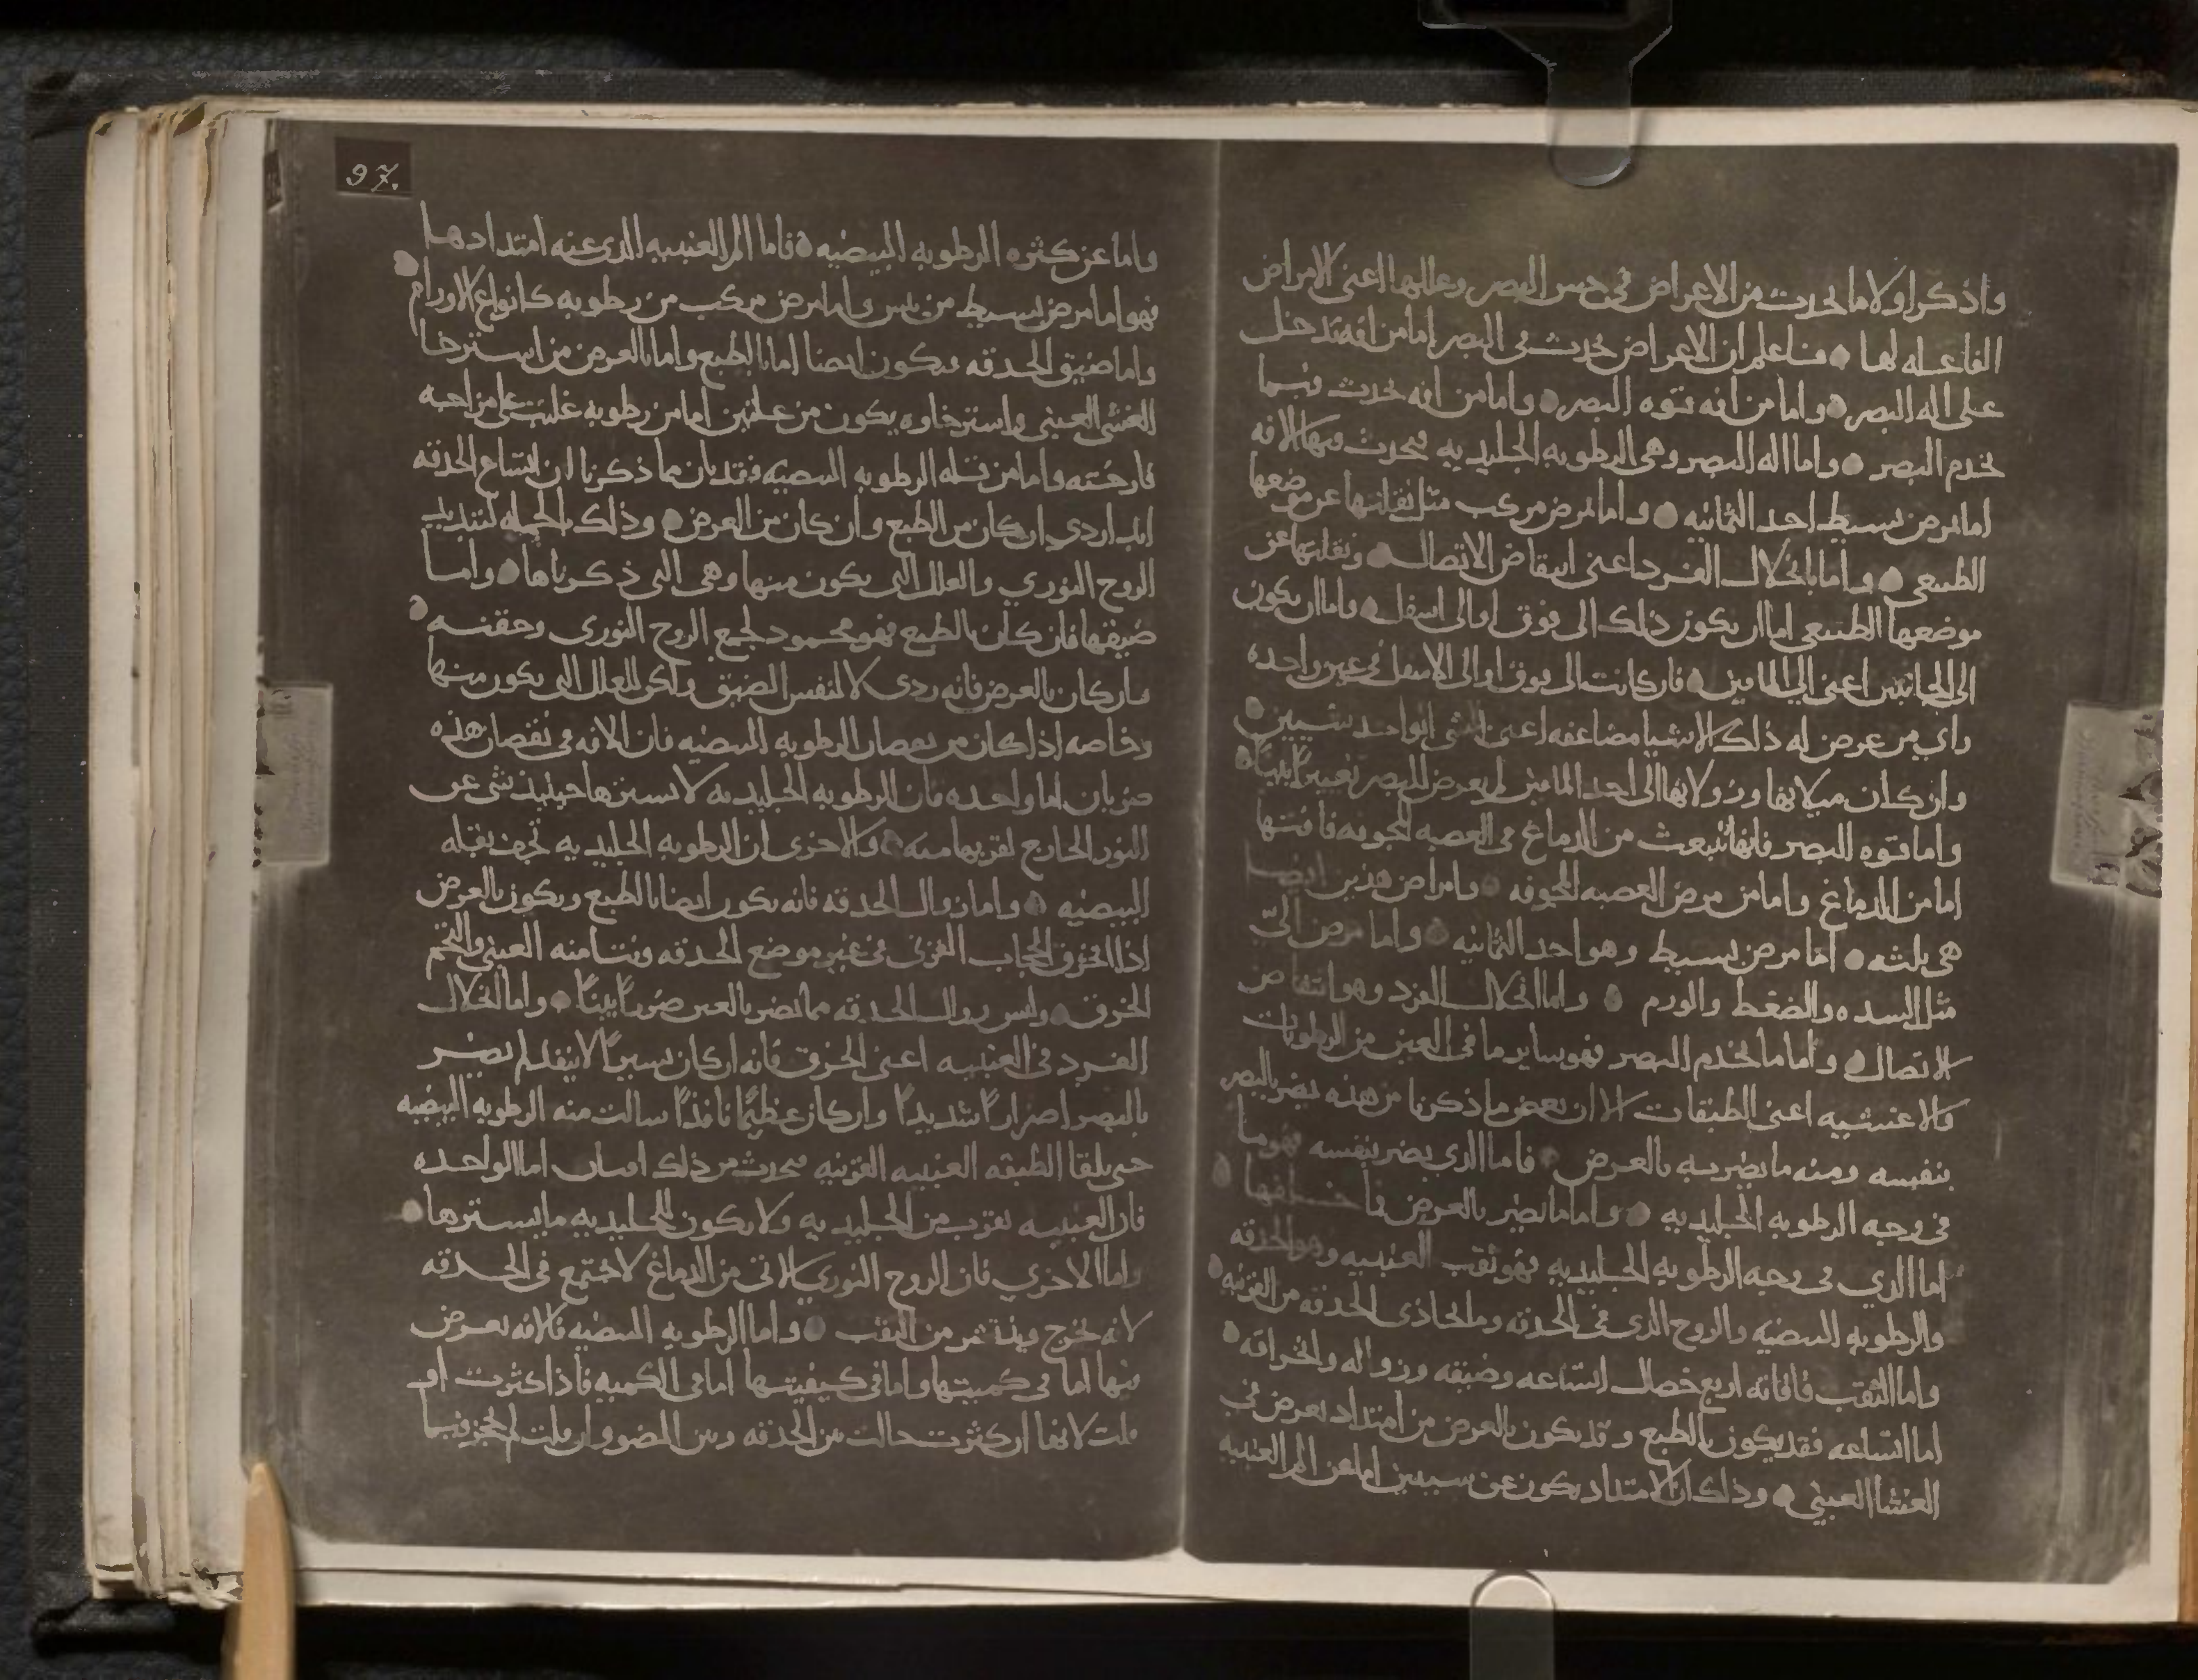 واذكر اولا ما يحدث من الاعراض في حس البصر وعللها اعني الامراض
الفاعله لها ٥ فاعلم ان الاعراض تحدث في البصر اما من افه تدخل
على اله البصر ٥ واما من افه قوه البصر ٥ واما من افه تحدث فيما
يخدم البصر ٥ واما اله البصر وهي الرطوبه الجليديه فيحدث فيها الافه
اما لمرض بسيط احد الثمانيه ٥ واما لمرض مركب مثل نقلتها عن موضعها
الطبيعي ٥ واما بانحلال الفرد اعني انتقاض الاتصال ٥ ونقلتها عن
موضعها الطبيعي اما ان يكون ذلك الى فوق او الى اسفل ٥ واما ان يكون
الى الجانبين اعني الى الماقين ٥ فان كانت الى فوق او الى الاسفل في عين واحده
راي من عرض له ذلك الاشيا مضاعفه اعني الشي الواحد شيين ٥
وان كان ميلانها وزولانها الى احد الماقين لم يعرض للبصر تغييرًا بينًا ٥
واما قوه البصر فانها تنبعث من الدماغ في العصبه المجوفه فافتها
اما من الدماغ واما من مرض العصبه المجوفه ٥ وامراض هذين ايضا
هي ثلثه ٥ اما مرض بسيط وهو احد الثمانيه ٥ واما مرض الي
مثل السده والضغط والورم ٥ واما انحلال الفرد وهو انتقاض
الاتصال ٥ واما ما يخدم البصر فهو ساير ما في العين من الرطوبات
والاغشيه اعني الطبقات الا ان بعض ما ذكرنا من هذه يضر بالبصر
بنفسه ومنه ما يضر به بالعرض ٥ فاما الذي يضر بنفسه فهو ما
في وجه الرطوبه الجليديه ٥ واما ما يضر بالعرض فما
اما الذي في وجه الرطوبه الجليديه فهو ثقب العنبيه وهو الحدقه
والرطوبه البيضيه والروح الذي في الحدقه وما يحاذي الحدقه من القرنيه ٥
واما الثقب فافاته اربع خصال اتساعه وضيقه وزواله وانخراقه ٥
اما اتساعه فقد يكون بالطبع وقد يكون بالعرض من امتداد يعرض في
الغشا العنبي ٥ وذلك ان الامتداد يكون عن سببين اما عن الم العنبيه
97.
واما عن كثره الرطوبه البيضيه ٥ فاما الم العنبيه الذي عنه امتدادها
فهو اما مرض بسيط من يبس واما مرض مركب من رطوبه كانواع الاورام ٥
واما ضيق الحدقه فيكون ايضا اما بالطبع واما بالعرض من استرخا
الغشي العنبي واسترخاوه يكون من علتين اما من رطوبه غلبت على مزاجه
فارخته واما من قله الرطوبه البيضيه فقد بان مما ذكرنا ان اتساع الحدقه
ابدا ردي ان كان من الطبع وان كان من العرض ٥ وذلك بالجمله لتبديد
الروح النوري والعلل التي يكون منها وهي التي ذكرناها ٥ واما
ضيقها فان كان بالطبع فهو محمود لجمع الروح النوري وحقنه ٥
وان كان بالعرض فانه ردي لا لنفس الضيق ولكن للعلل التي يكون منها
وخاصه اذا كان من نقصان الرطوبه البيضيه فان الافه في نقصان هذه
ضربان اما واحده فان الرطوبه الجليديه لا يسترها حينيذ شي عن
النور الخارج لقربها منه ٥ والاخرى ان الرطوبه الجليديه تجف بقله
البيضيه ٥ واما زوال الحدقه فانه يكون ايضا بالطبع ويكون بالعرض
اذا انخرق الحجاب القرني في غير موضع الحدقه ونتا منه العنبي والتحم
الخرق ٥ وليس زوال الحدقه مما يضر بالعين ضررًا بينًا ٥ واما انحلال
الفرد في العنبيه اعني الخرق فانه ان كان يسيرًا لا ينفد لم يضر
بالبصر اضرارًا شديدًا وان كان عظيمًا نافذًا سالت منه الرطوبه البيضيه
حتى يلقا الطبقه العنبيه القرنيه فيحدث من ذلك افتان اما الواحده
فان العنبيه تقرب من الجليديه ولا يكون للجليديه ما يسترها ٥
واما الاخرى فان الروح النوري الاتي من الدماغ لا تجتمع في الحدقه
لانه يخرج وينفذ من الثقب ٥ واما الرطوبه البيضيه فالافه تعرض
فيها اما في كميتها واما في كيفيتها اما في الكميه فاذا كثرت او
قلت لانها ان كثرت حالت بين الحدقه وبين الضو وان قلت لم يحجز فيما